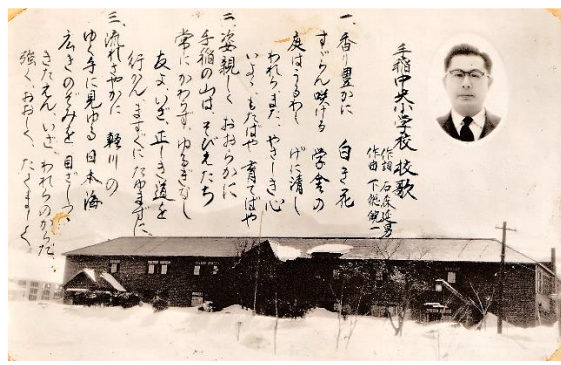 手稲中央小学校 校歌
作詞 石森延男
作曲 下總皖一
一、香り豊かに 白き花
すゞらん咲ける 学舎の
庭はうるわし げに清し
われらまた、やさしき心
いよゝもたばや 育てばや
二、姿親しく おおらかに
手稲の山は、そびえたち
常にかわらず、ゆるぎなし
友よ、いざ正しき道を
行かん、ますぐに たゆまずに
三、流れさやかに 軽川の
ゆく手に見ゆる 日本海
広きのぞみを 目ざしつゝ
きたえん、いざ、われらのからだ
強く、おおしく、たくましく